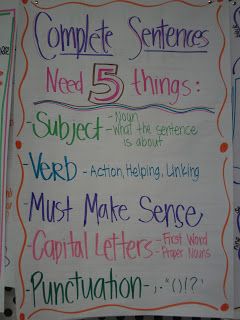 Complete Sentences
Need 5 things:
-Subject - Noun
- What the sentence
is about
-Verb - Action, Helping, Linking
-Must Make Sense
-Capital Letters - First Word
- Proper Nouns
-Punctuation - ,."()!?"